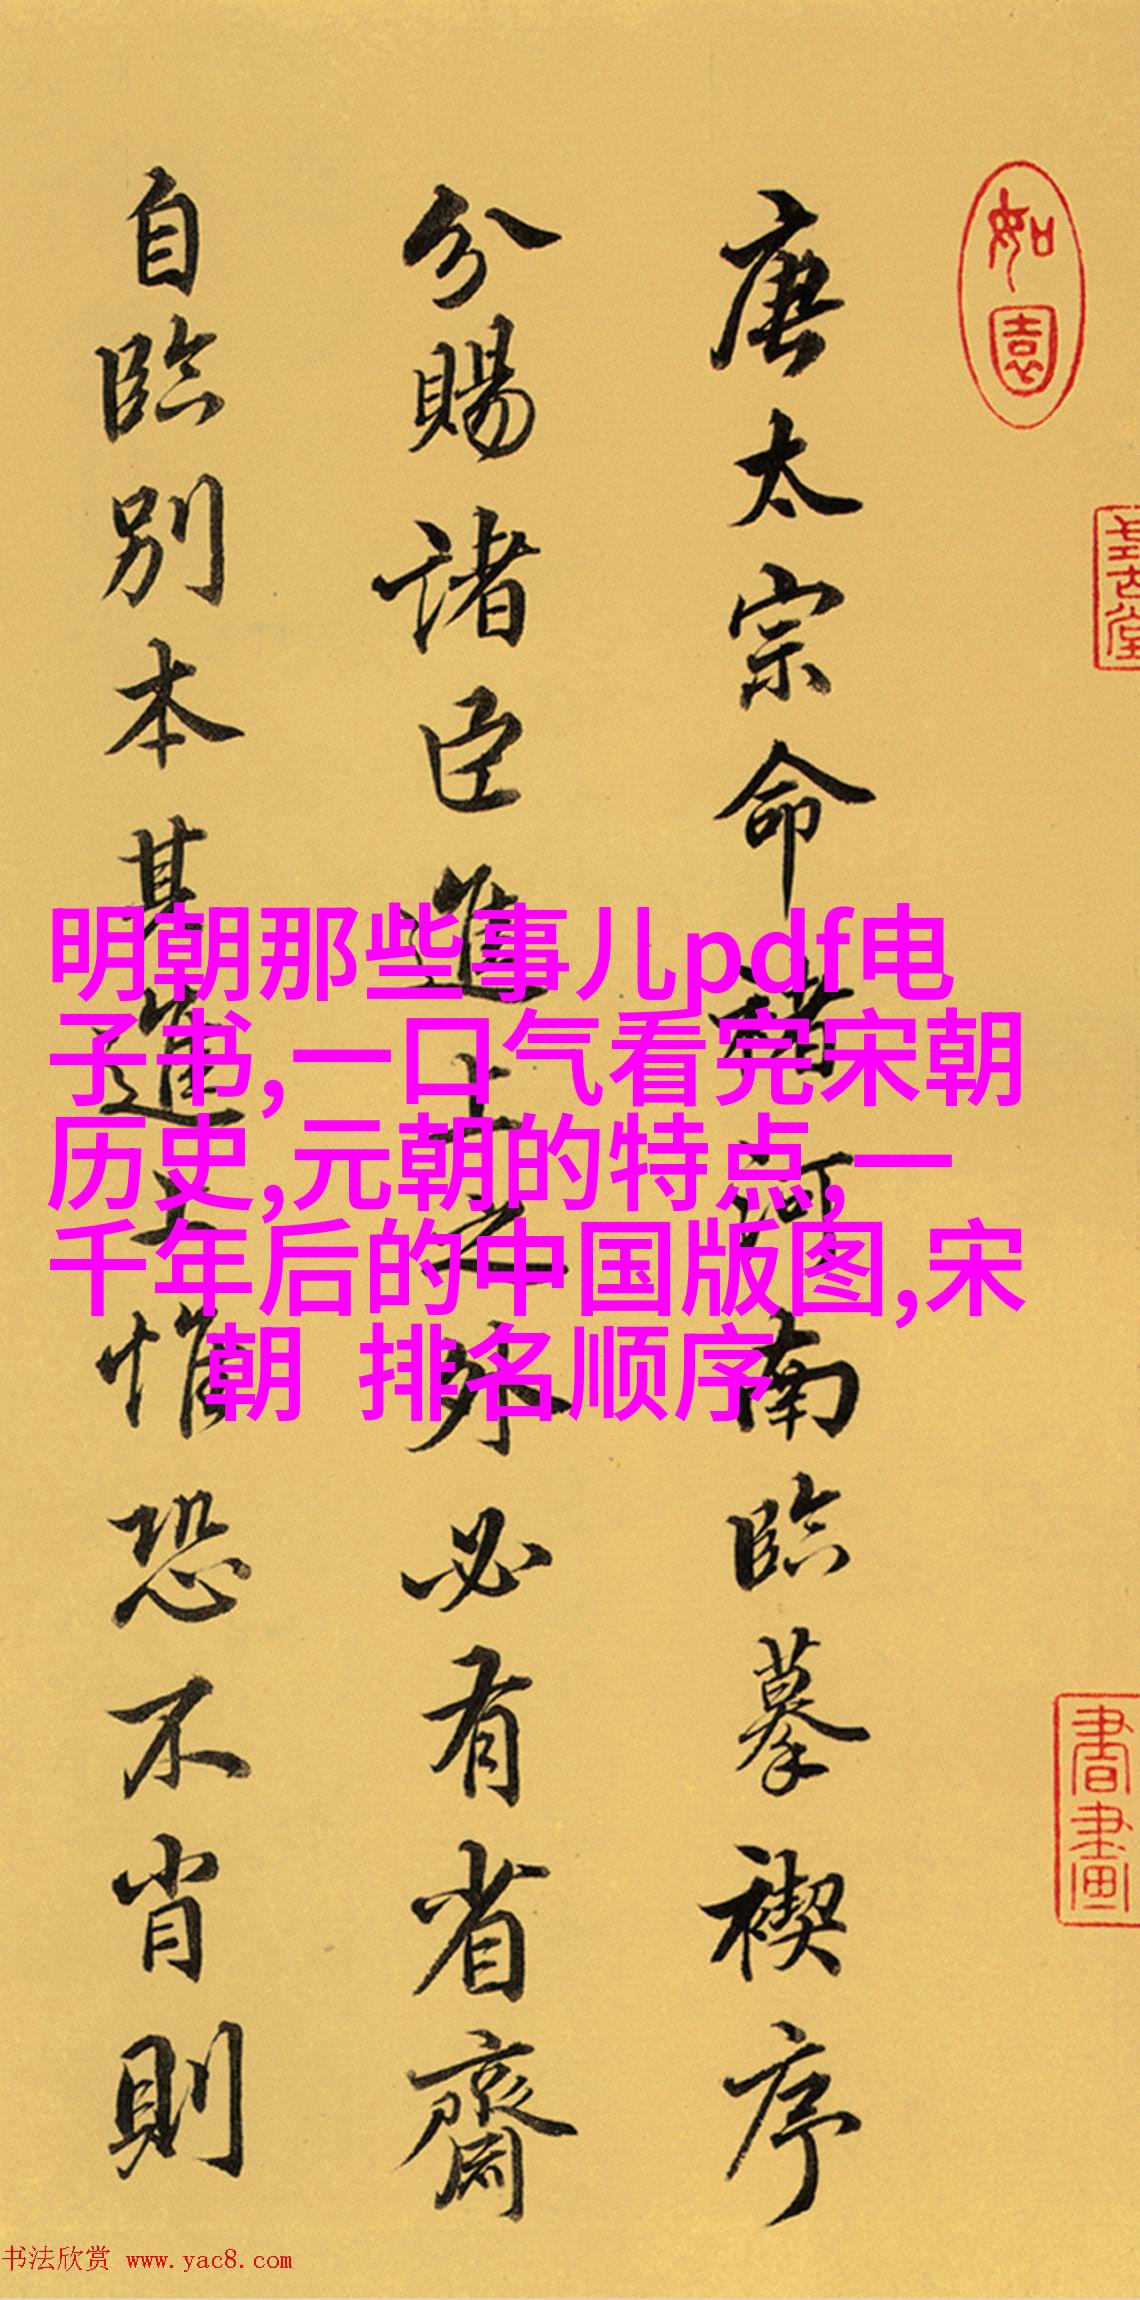 如園
書畫
唐太宗命褚河南臨摹禊序
分賜諸臣進上之外必有省齋
自臨別本其進上惟恐不肖則
明朝那些事儿pdf电
子书,一口气看完宋朝
历史,元朝的特点,一
千年后的中国版图,宋
朝 排名顺序
书法欣赏 www.yac8.com